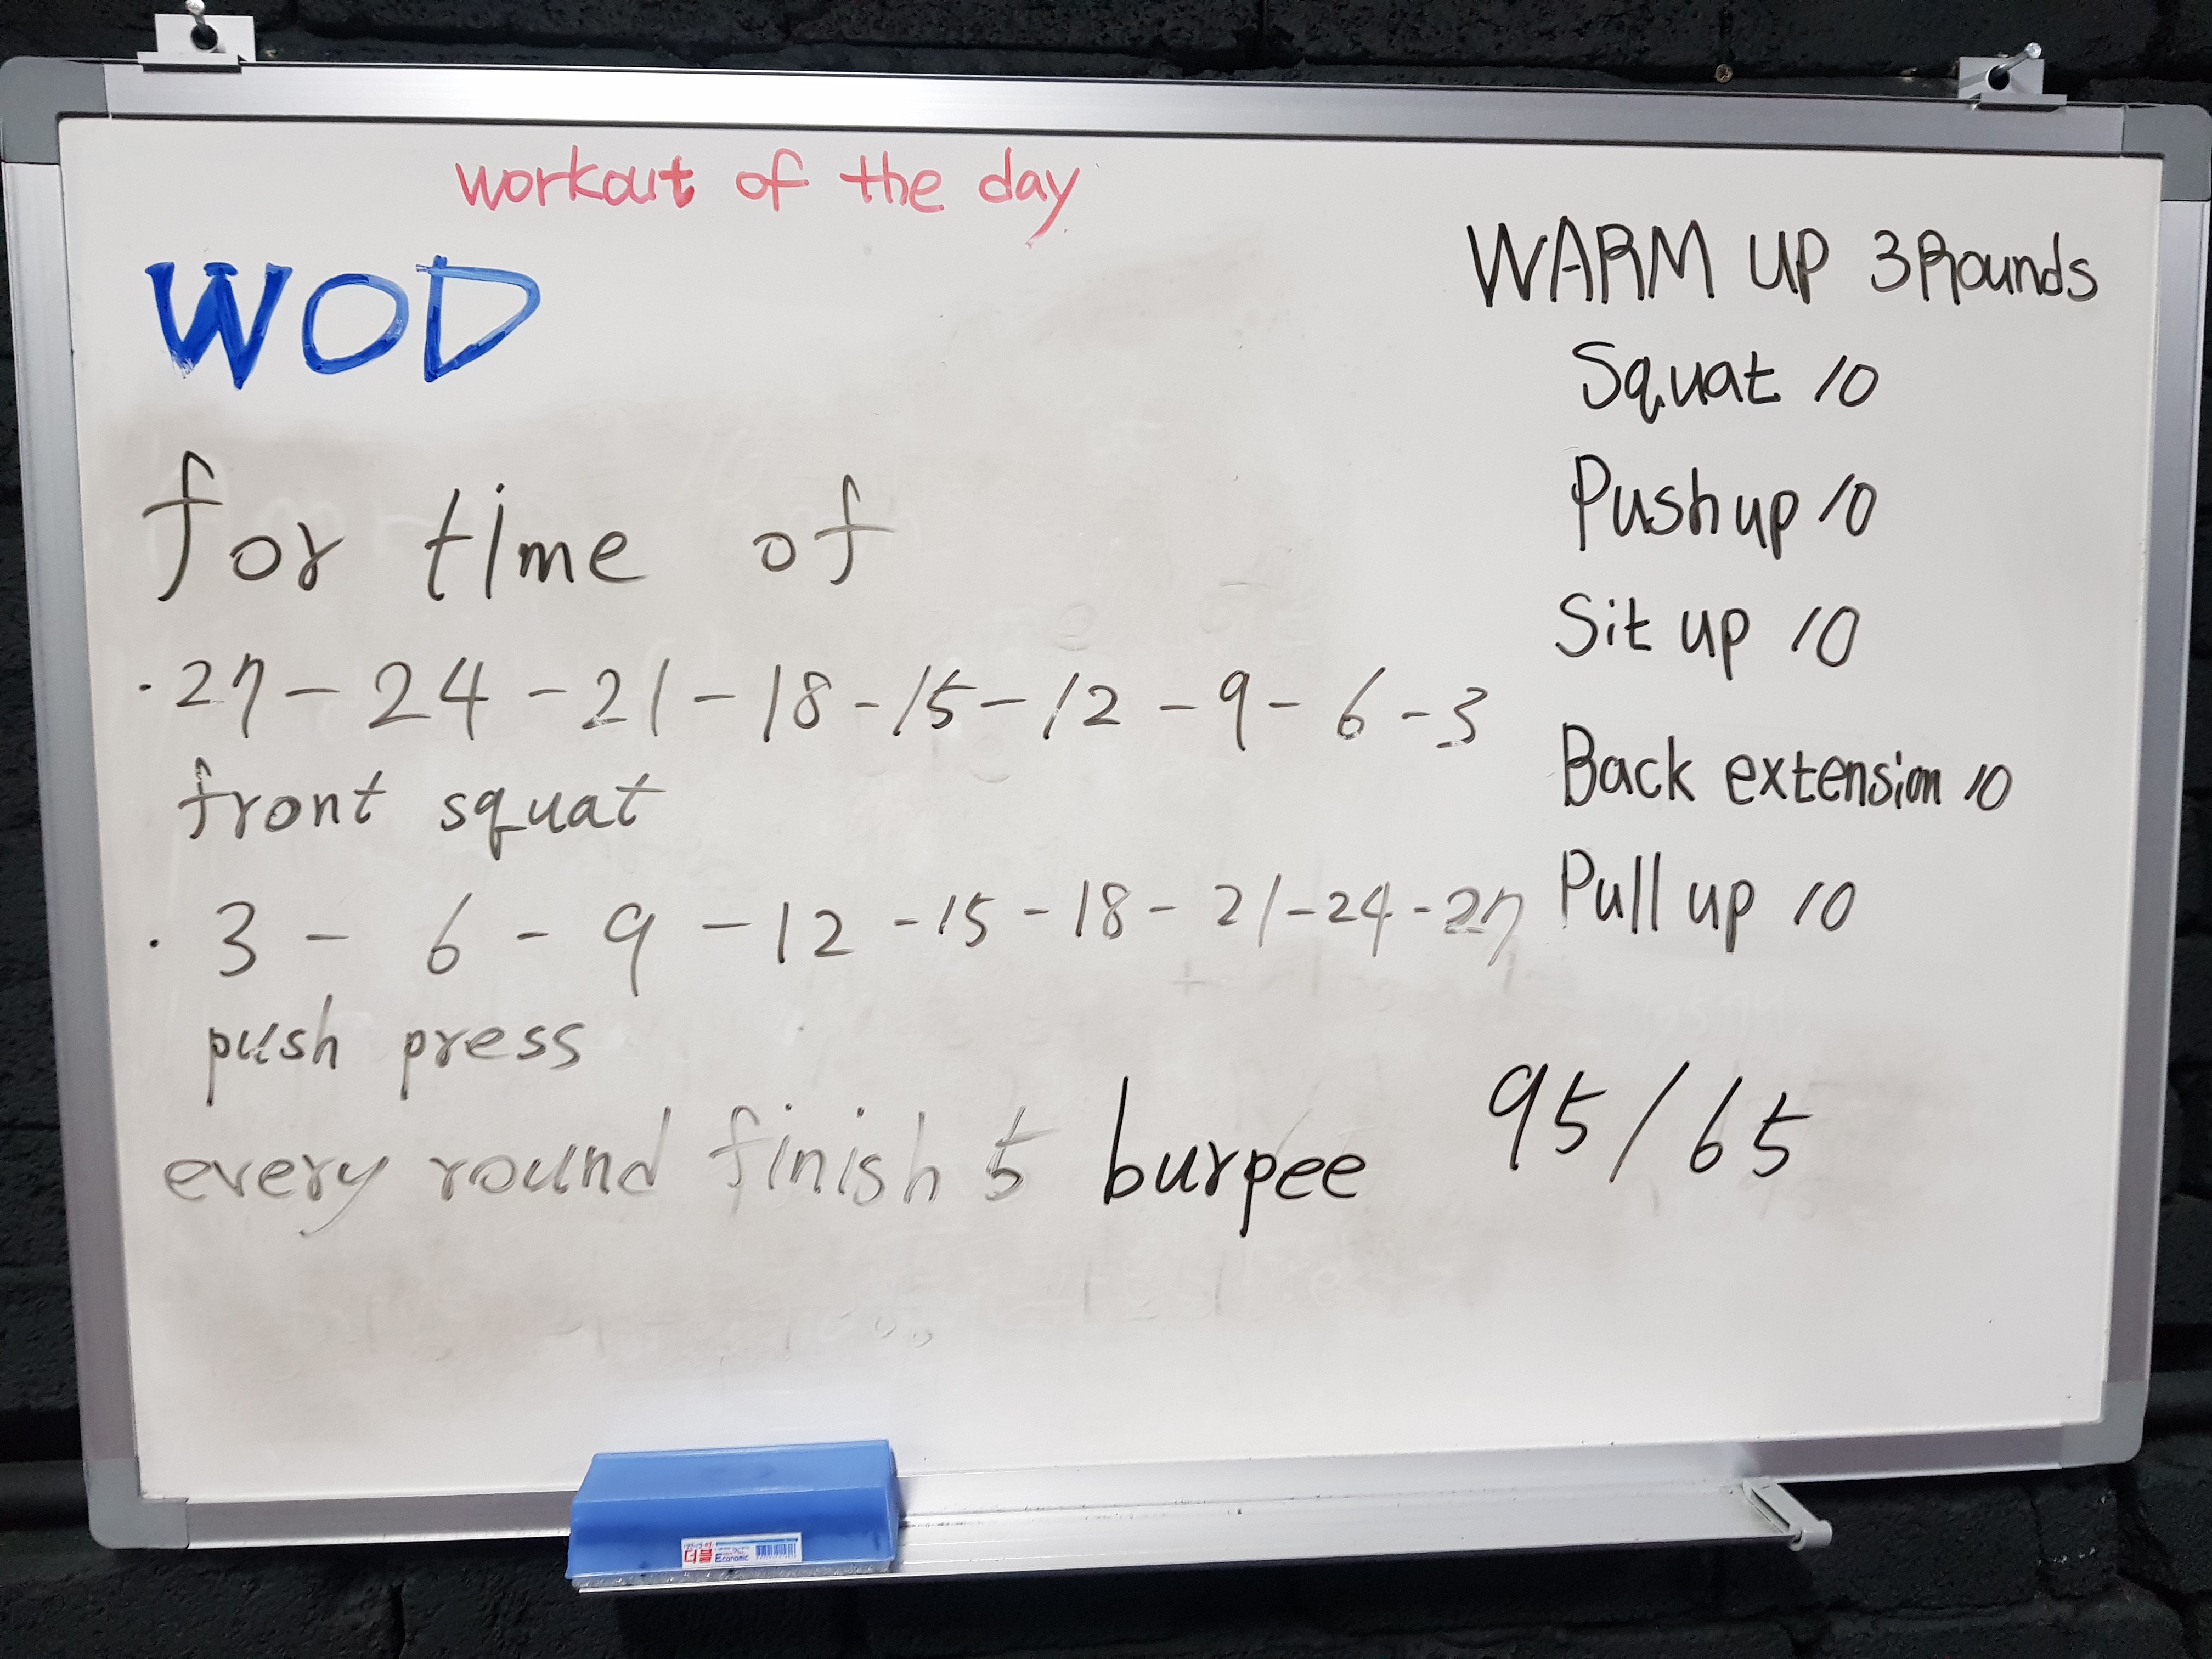 workout of the day
WOD
for time of
·27-24-21-18-15-12-9-6-3
front squat
·3-6-9-12-15-18-21-24-27
push press
every round finish 5 burpee
95/65
WARM UP 3Rounds
Squat 10
Push up 10
Sit up 10
Back extension 10
Pull up 10
더블
Economic